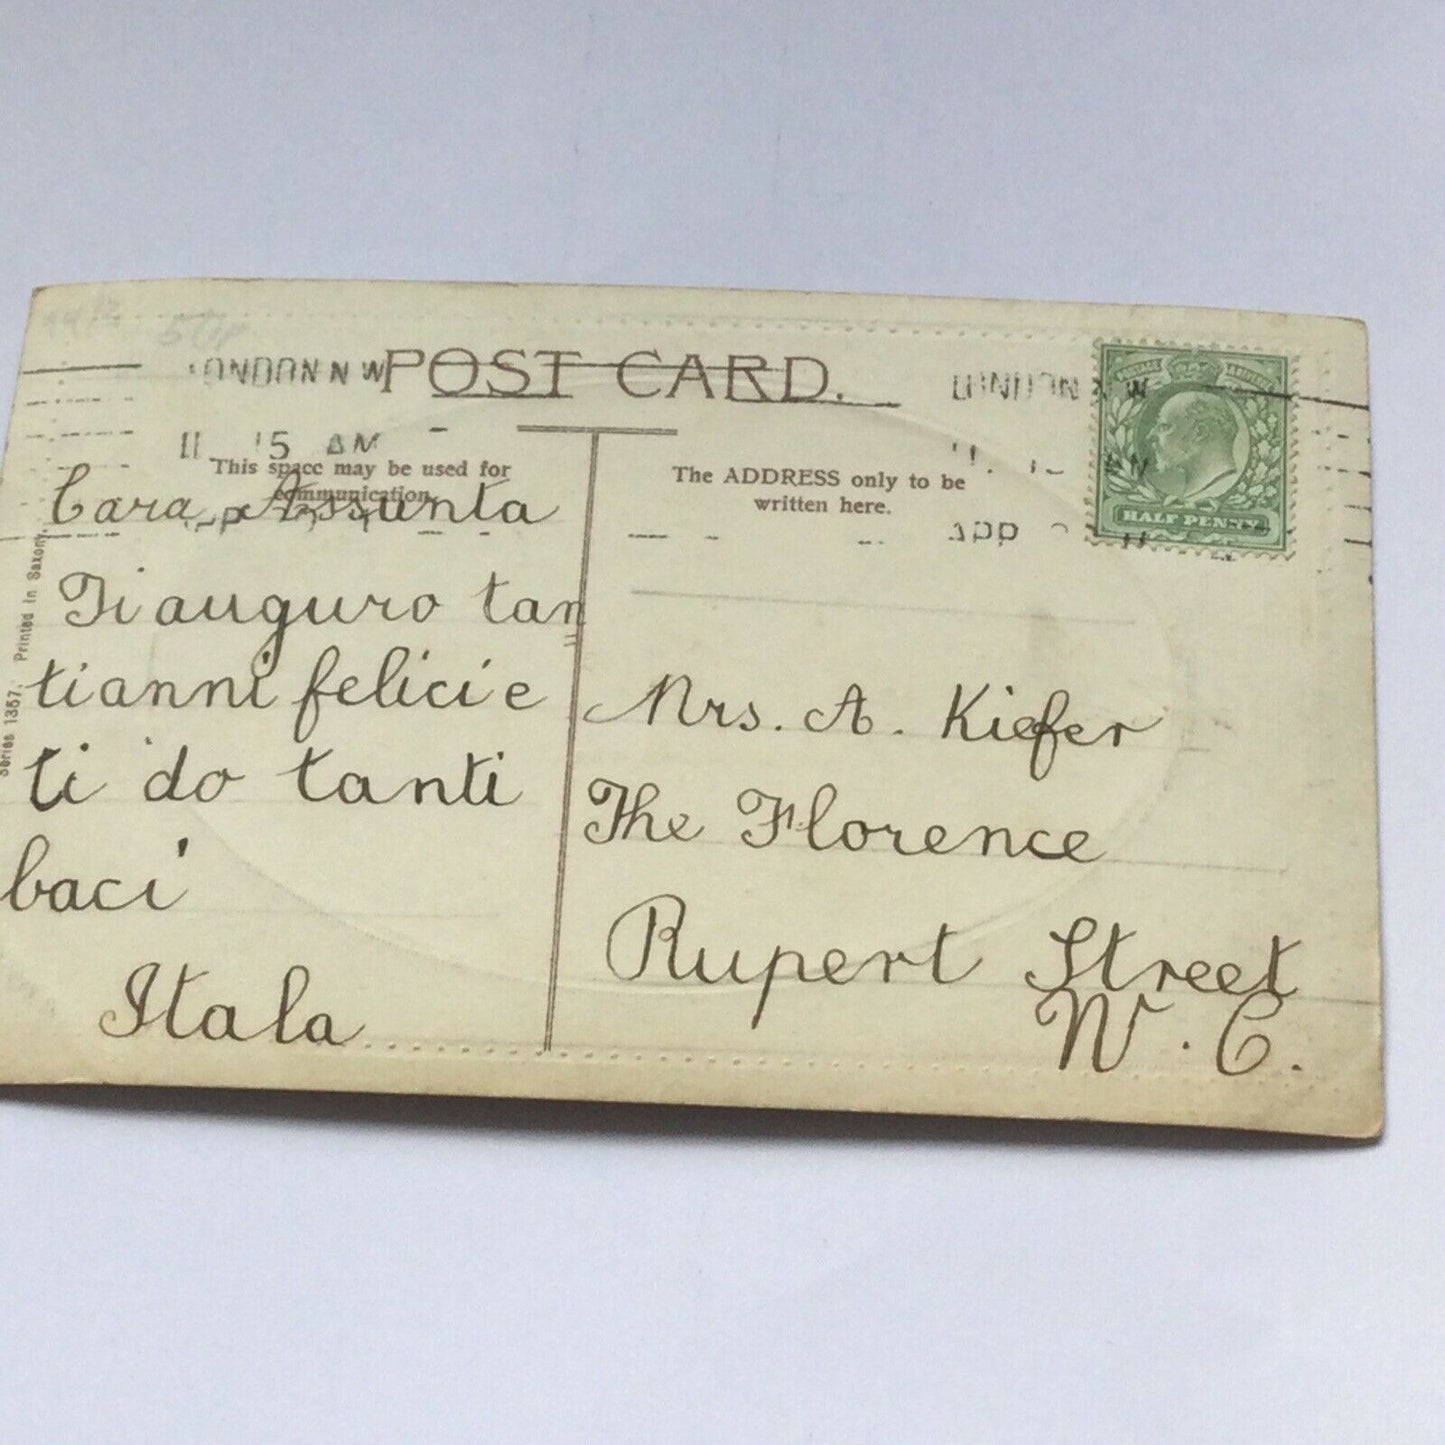 LONDON N W
POST CARD.
LONDON N W
11 15 AM
This space may be used for
communication.
The ADDRESS only to be
written here.
HALF PENNY
Cara Assunta
Ti auguro tan
=
tianni felici e
ti do tanti
baci
Itala
Mrs. A. Kiefer
The Florence
Rupert Street
W. C.
Series 1357. Printed in Saxony.